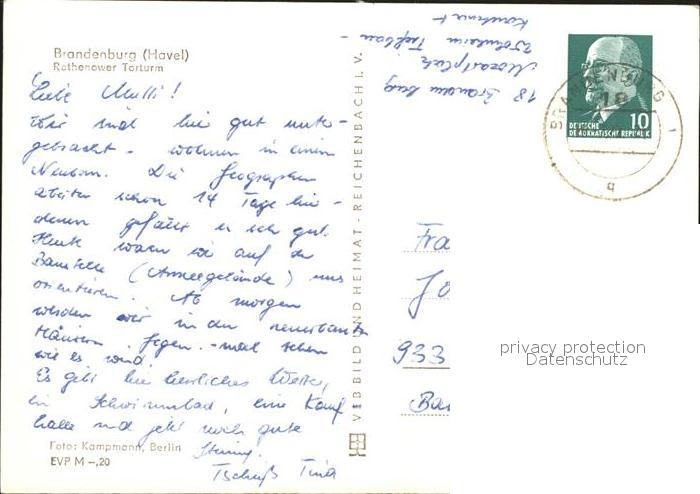 Brandenburg (Havel)
Rathenower Torturm
Liebe Mutti!
Wir sind hie gut unter-
gebracht - wohnen in einem
Neubau. Die Geographen
arbeiten schon 14 Tage hie -
denen gefällt es sehr gut.
Heute waren wir auf der
Baustelle (Armeegelände) uns
orientieren. Ab morgen
werden wir in den neuerbauten
Häusern - mal sehen
wie es wird.
Es gibt hie herrliches Wetter,
ein Schwimmbad, eine Kauf
halle und jetzt noch gute
Stimmg.
Tschüß Tina
Foto: Kampmann, Berlin
EVP M -,20
VEB BILD UND HEIMAT · REICHENBACH I. V.
18 Brandenburg
Mozartplatz
Wohnheim Tiefbau -
BRANDENBURG 1
18
q
10
DEUTSCHE
DEMOKRATISCHE REPUBLIK
Fra
Jo
933
privacy protection
Datenschutz